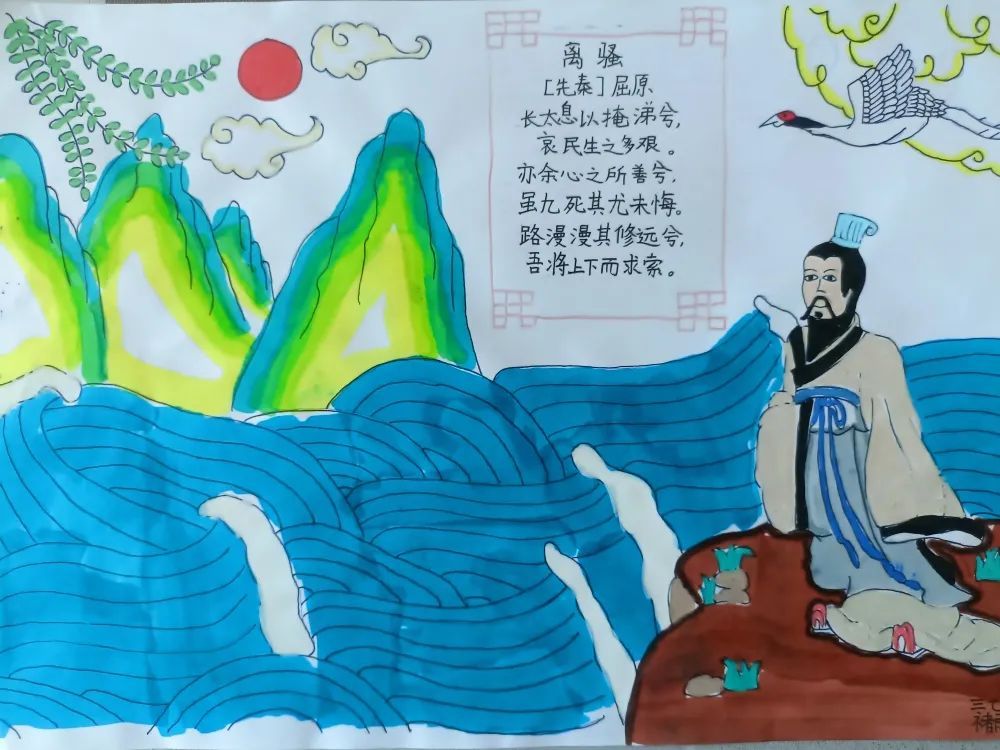 离骚
[先秦]屈原
长太息以掩涕兮，
哀民生之多艰。
亦余心之所善兮，
虽九死其尤未悔。
路漫漫其修远兮，
吾将上下而求索。
三七